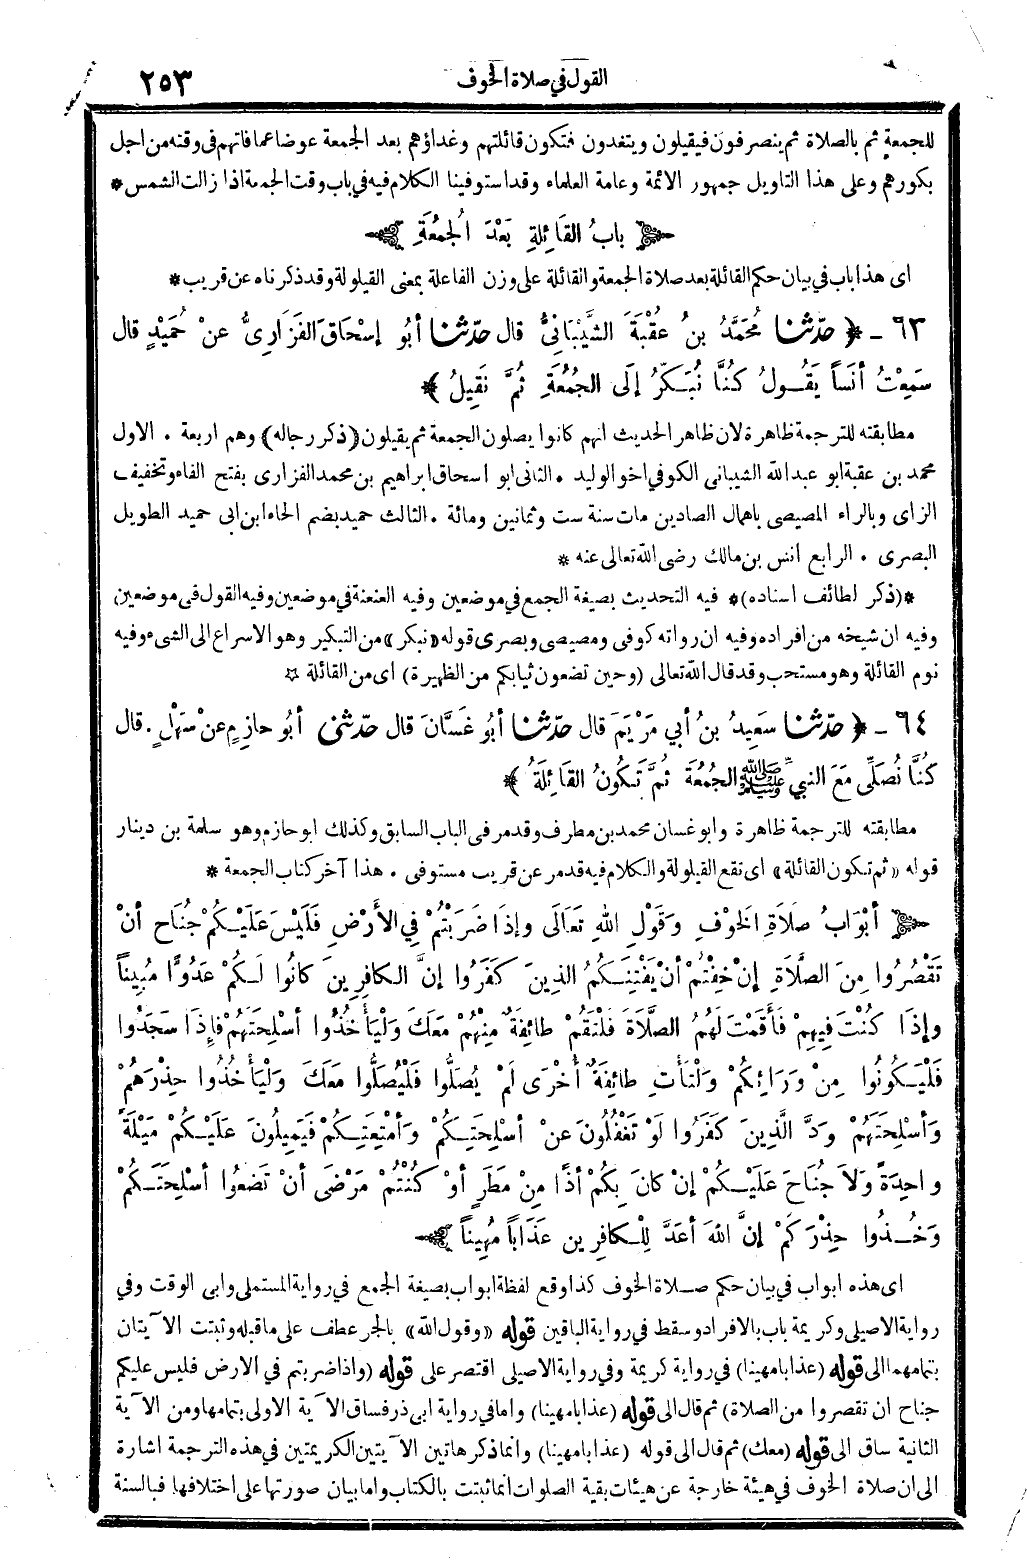 القول في صلاة الخوف
٢٥٣
للجمعة ثم بالصلاة ثم ينصرفون فيقيلون ويتغدون فتكون قائلتهم وغداؤهم بعد الجمعة عوضا عما فاتهم فى وقته من اجل
بكورهم وعلى هذا التاويل جمهور الائمة وعامة العلماء وقد استوفينا الكلام فيه في باب وقت الجمعة اذا زالت الشمس *
﴿ بابُ القَائِلةِ بَعْدَ الجُمعَةِ ﴾
اى هذا باب في بيان حكم القائلة بعد صلاة الجمعة والقائلة على وزن الفاعلة بمعنى القيلولة وقد ذكرناه عن قريب *
٦٣ - ﴿ حدّثنا مُحَمَّدُ بنُ عُقْبَةَ الشَّيْبَانِيُّ قال حدّثنا أبُو إسْحَاقَ الفَزَارِيُّ عنْ حُمَيْدٍ قال
سَمِعْتُ أنَساً يَقُولُ كُنَّا نُبَكّرُ إلَى الجُمُعَةِ ثُمَّ نَقِيلُ ﴾
مطابقته للترجمة ظاهرة لان ظاهر الحديث انهم كانوا يصلون الجمعة ثم يقيلون (ذكر رجاله) وهم اربعة . الاول
محمد بن عقبة ابو عبد الله الشيبانى الكوفي اخو الوليد . الثانى ابو اسحاق ابراهيم بن محمد الفزارى بفتح الفاء وتخفيف
الزاى وبالراء المصيصى باهمال الصادين مات سنة ست وثمانين ومائة . الثالث حميد بضم الحاء ابن ابى حميد الطويل
البصرى . الرابع انس بن مالك رضى الله تعالى عنه *
*(ذكر لطائف اسناده)* فيه التحديث بصيغة الجمع في موضعين وفيه العنعنة في موضعين وفيه القول فى موضعين
وفيه ان شيخه من افراده وفيه ان رواته كوفى ومصيصى وبصرى قوله «نبكر» من التبكير وهو الاسراع الى الشىء وفيه
نوم القائلة وهو مستحب وقد قال الله تعالى (وحين تضعون ثيابكم من الظهيرة) اى من القائلة ☆
٦٤ - ﴿ حدّثنا سَعِيدُ بنُ أبي مَرْيَمَ قال حدّثنا أبُو غَسَّانَ قال حدّثنى أبُو حازِمٍ عنْ سَهْلٍ . قال
كُنَّا نُصَلِّى مَعَ النبيِّ ﷺ الجُمُعَةَ ثُمَّ تَكُونُ القَائِلَةُ ﴾
مطابقته للترجمة ظاهرة وابو غسان محمد بن مطرف وقد مر فى الباب السابق وكذلك ابو حازم وهو سلمة بن دينار
قوله «ثم تكون القائلة» اى تقع القيلولة والكلام فيه قد مر عن قريب مستوفى . هذا آخر كتاب الجمعة *
﴿ أبْوَابُ صَلاَةِ الخَوْفِ وَقَوْلِ اللهِ تَعَالَى وإذَا ضَرَبْتُمْ فِي الأَرْضِ فَلَيْسَ عَلَيْكُمْ جُنَاحٌ أنْ
تَقْصُرُوا مِنَ الصَّلَاةِ إنْ خِفْتُمْ أنْ يَفْتِنَكُمُ الذِينَ كَفَرُوا إنَّ الكافِرِينَ كانُوا لَكُمْ عَدُوًّا مُبِيناً
وإذَا كُنْتَ فِيهِمْ فَأَقَمْتَ لَهُمُ الصَّلَاةَ فَلْتَقُمْ طائِفَةٌ مِنْهُمْ مَعَكَ وَلْيَأْخُذُوا أسْلِحَتَهُمْ فإذَا سَجَدُوا
فَلْيَكُونُوا مِنْ وَرَائِكُمْ وَلْتَأْتِ طائِفَةٌ أُخْرَى لَمْ يُصَلُّوا فَلْيُصَلُّوا مَعَكَ وَلْيَأْخُذُوا حِذْرَهُمْ
وَأسْلِحَتَهُمْ وَدَّ الَّذِينَ كَفَرُوا لَوْ تَغْفُلُونَ عنْ أسْلِحَتِكُمْ وَأمْتِعَتِكُمْ فَيَمِيلُونَ عَلَيْكُمْ مَيْلَةً
واحِدَةً وَلاَ جُنَاحَ عَلَيْكُمْ إنْ كانَ بِكُمْ أذًا مِنْ مَطَرٍ أوْ كُنْتُمْ مَرْضَى أنْ تَضَعُوا أسْلِحَتَكُمْ
وَخُذُوا حِذْرَكُمْ إنَّ اللهَ أعَدَّ لِلْكافِرِينَ عَذَاباً مُهِيناً ﴾
اى هذه ابواب في بيان حكم صلاة الخوف كذا وقع لفظة ابواب بصيغة الجمع في رواية المستملى وابى الوقت وفي
رواية الاصيلى وكريمة باب بالافراد وسقط في رواية الباقين قوله «وقول الله» بالجر عطف على ما قبله وثبتت الآيتان
بتمامهما الى قوله (عذابا مهينا) في رواية كريمة وفي رواية الاصيلى اقتصر على قوله (واذا ضربتم في الارض فليس عليكم
جناح ان تقصروا من الصلاة) ثم قال الى قوله (عذابا مهينا) واما في رواية ابى ذر فساق الآية الاولى بتمامها ومن الآية
الثانية ساق الى قوله (معك) ثم قال الى قوله (عذابا مهينا) وانما ذكر هاتين الآيتين الكريمتين في هذه الترجمة اشارة
الى ان صلاة الخوف في هيئة خارجة عن هيئات بقية الصلوات انما ثبتت بالكتاب واما بيان صورتها على اختلافها فبالسنة